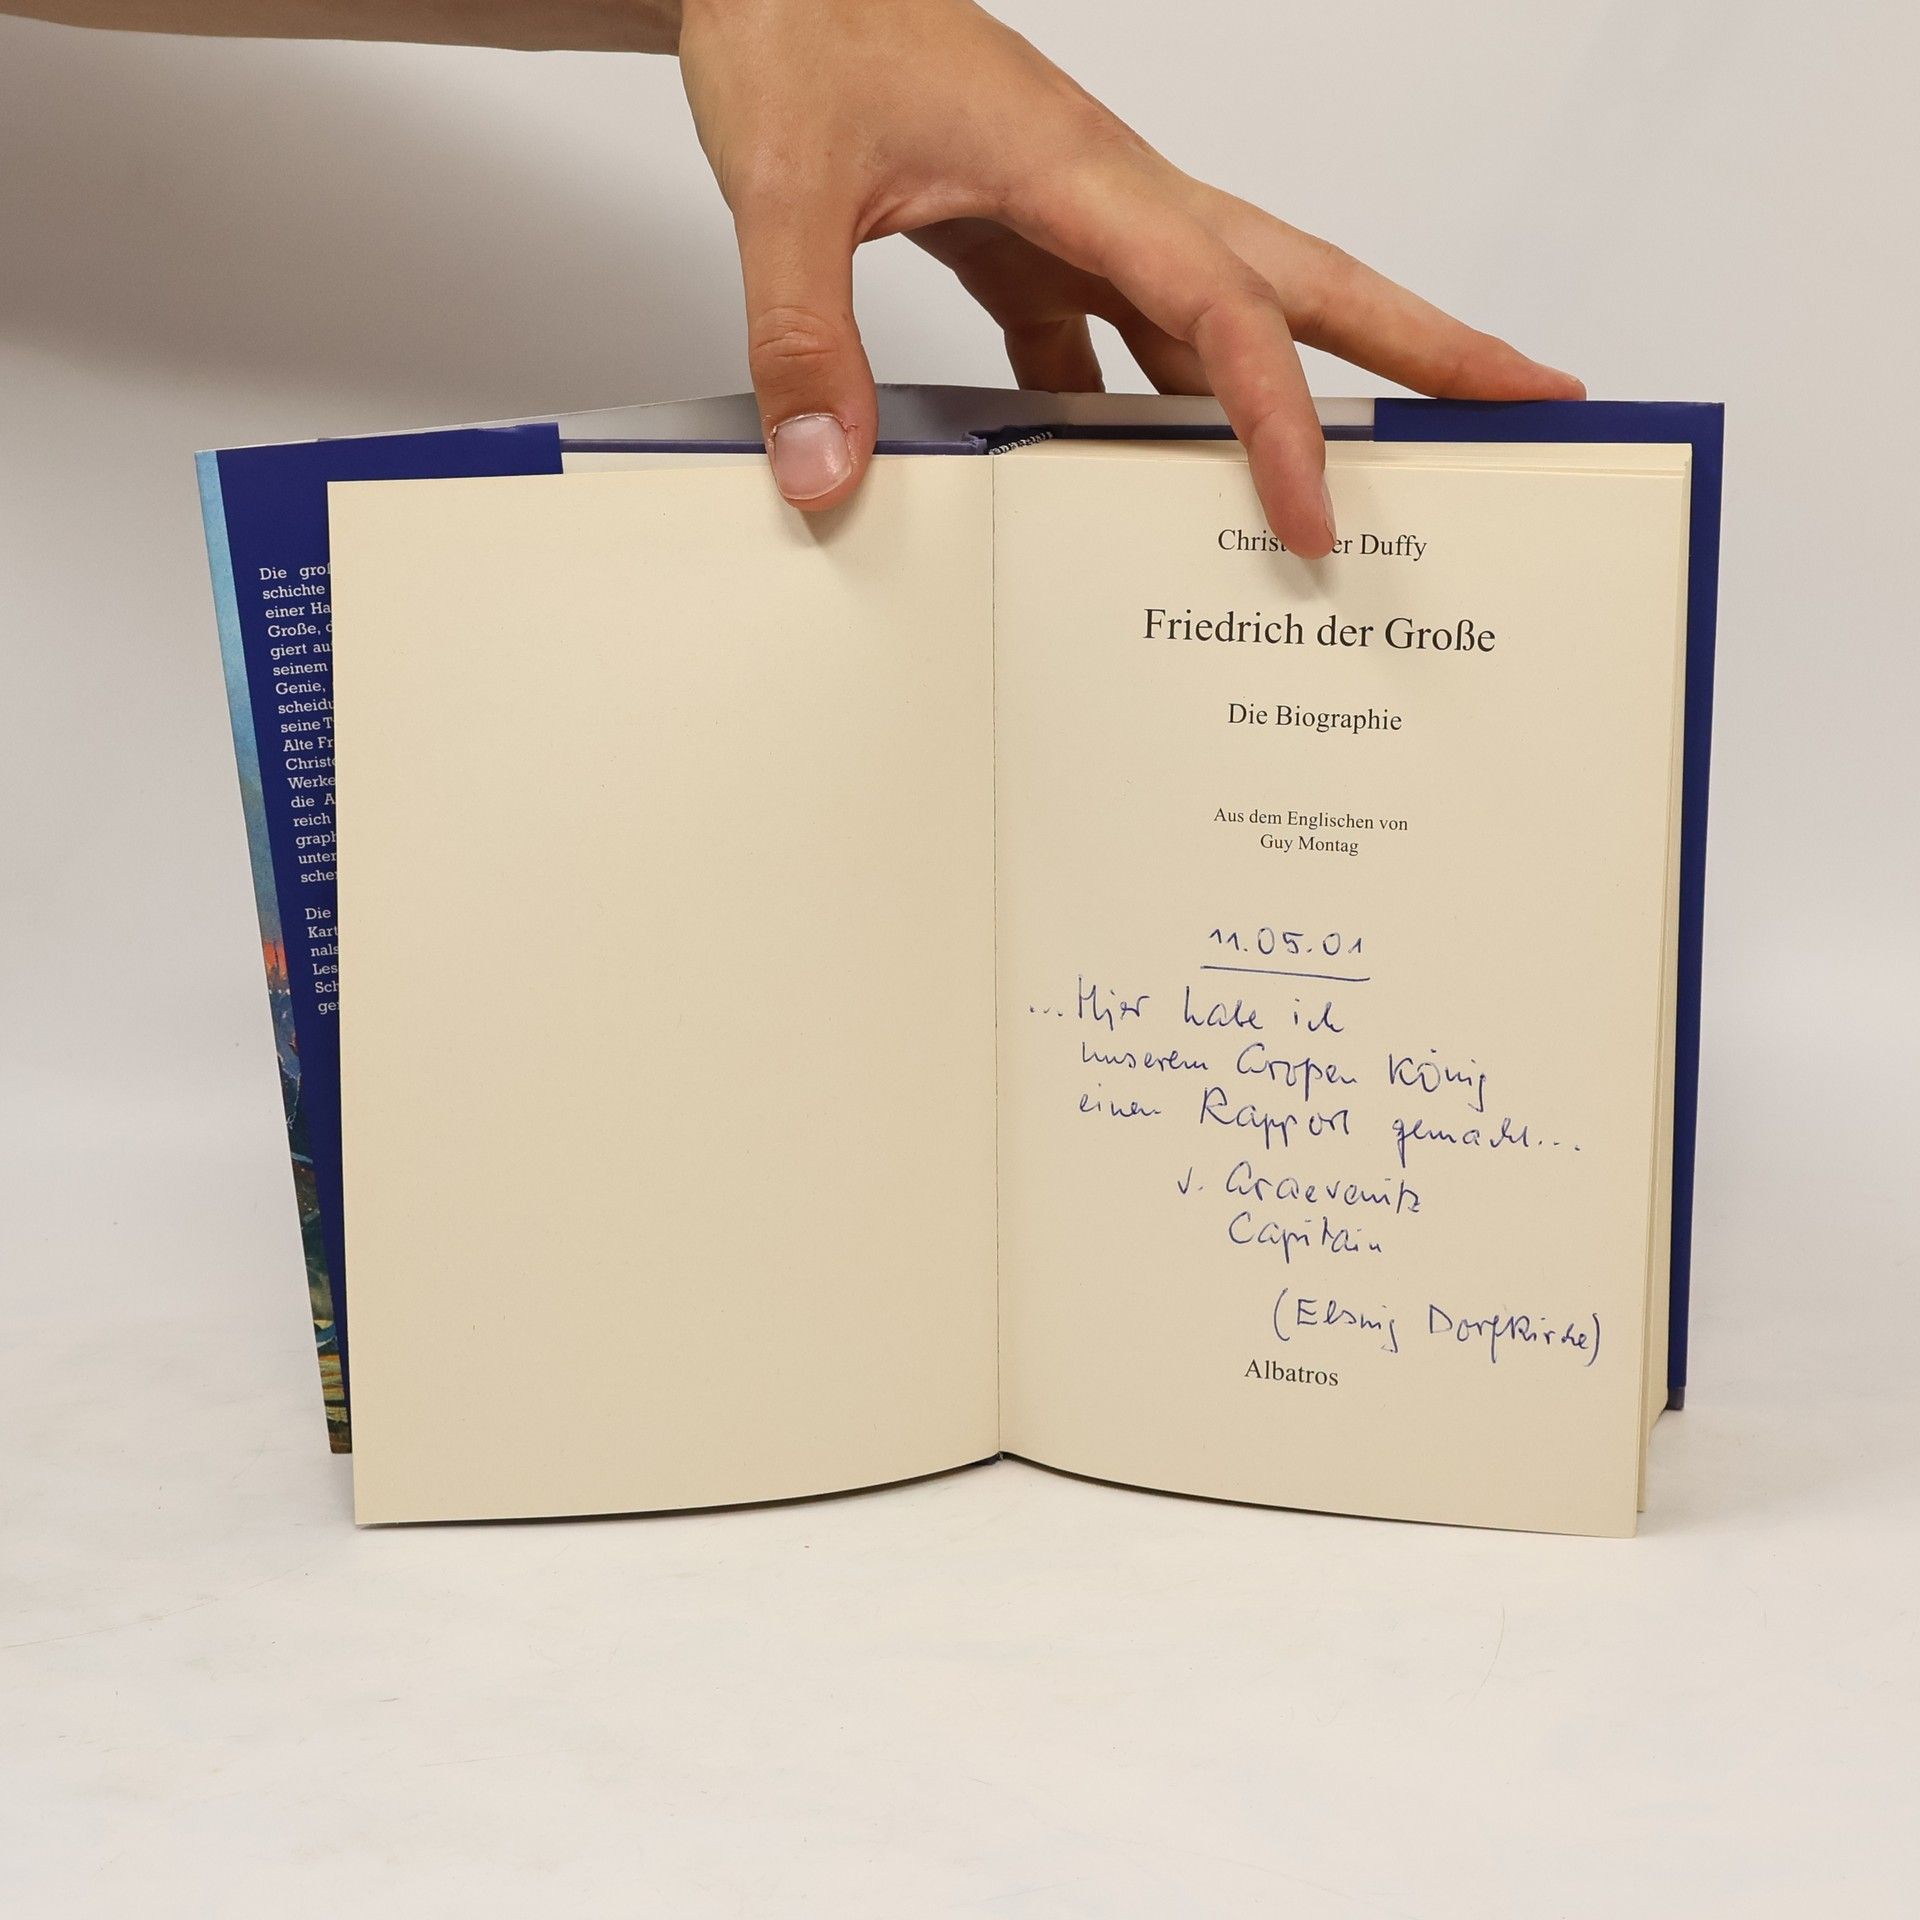 Die groß
schichte
einer Ha
Große, d
giert au
seinem
Genie,
scheidu
seine T
Alte Fr
Christo
Werke
die A
reich
graph
unter
schen
Die
Kart
nals
Les
Sch
ge
Christ er Duffy
Friedrich der Große
Die Biographie
Aus dem Englischen von
Guy Montag
11.05.01
... Hier habe ich
unserem Großen König
einen Rapport gemacht...
v. Graevenitz
Capitain
(Elsnig Dorfkirche)
Albatros